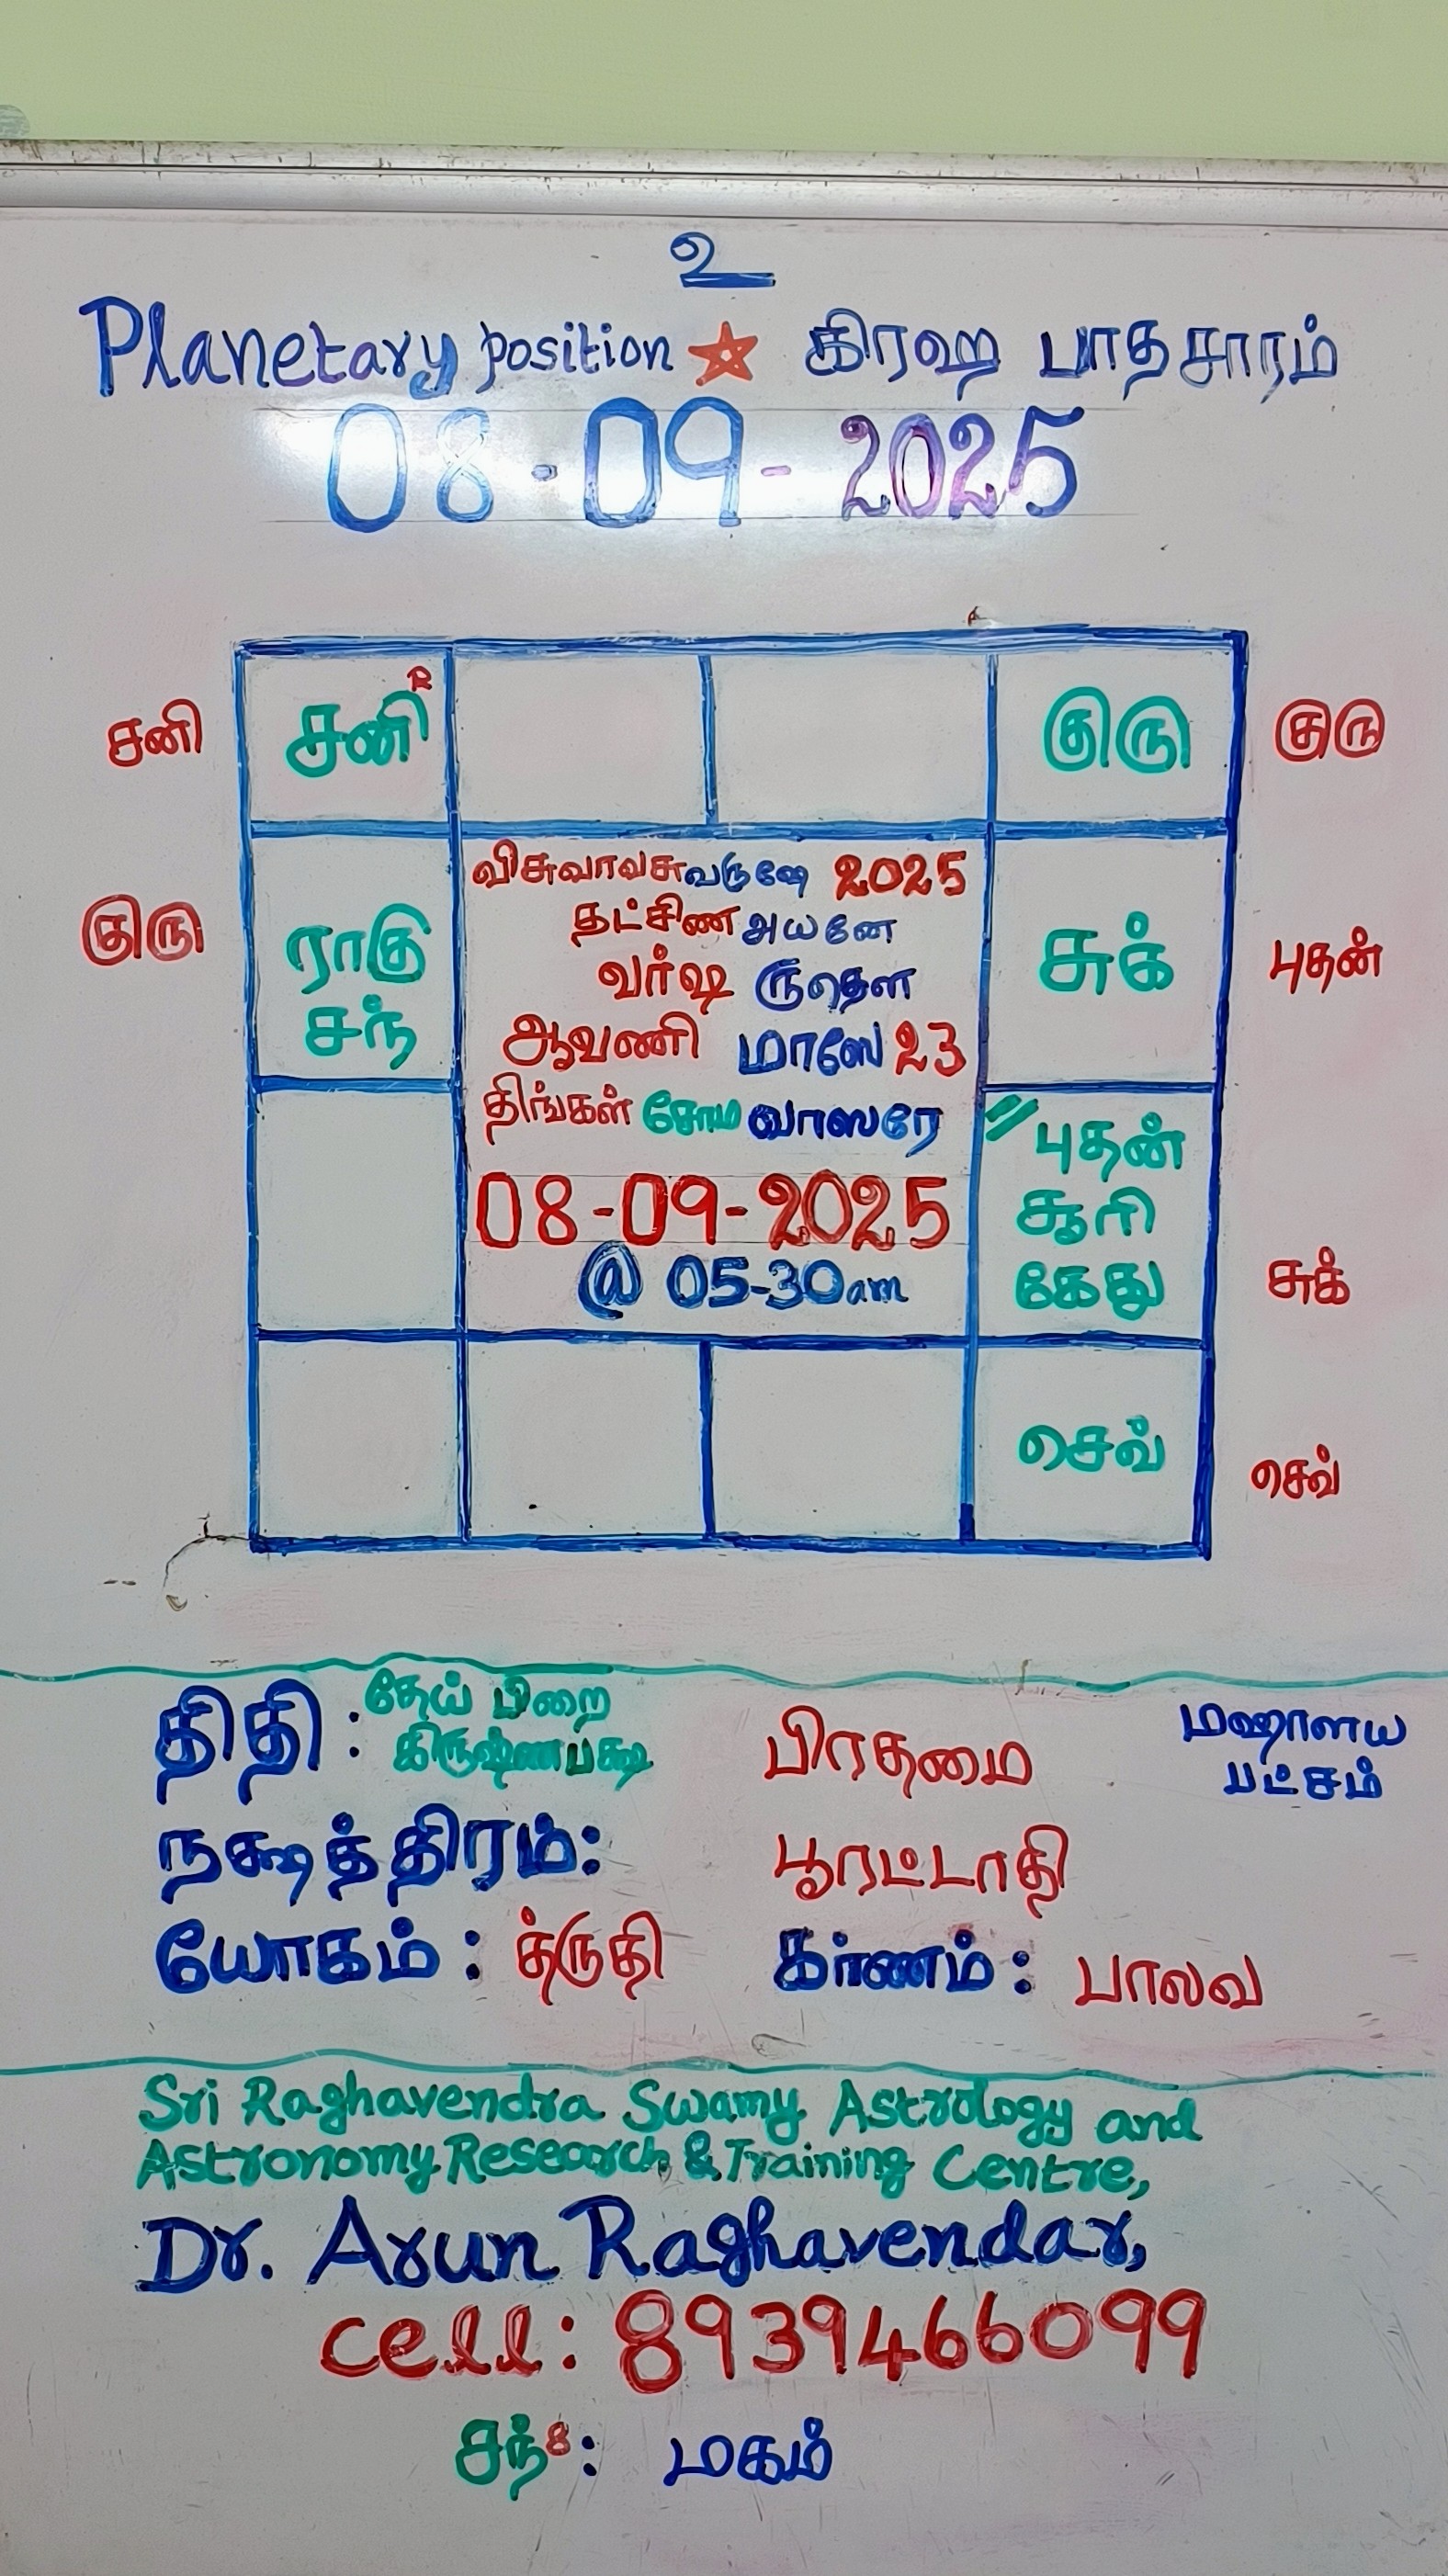 உ
Planetary position ★ கிரஹ பாதசாரம்
08-09-2025
சனி சனி R குரு குரு
விசுவாவசுவருஷே 2025
தட்சிண அயனே
குரு ராகு சுக் புதன்
சந்
வர்ஷ ருதௌ
ஆவணி மாஸே 23
திங்கள் சோம வாஸரே
08-09-2025
@ 05-30am
புதன்
சூரி
கேது சுக்
செவ் செவ்
திதி : தேய் பிறை பிரதமை மஹாளய
கிருஷ்ணபக்ஷ பட்சம்
நக்ஷத்திரம்: பூரட்டாதி
யோகம் : த்ருதி கர்ணம் : பாலவ
Sri Raghavendra Swamy Astrology and
Astronomy Research & Training Centre,
Dr. Arun Raghavendar,
cell: 8939466099
சந் 8 : மகம்